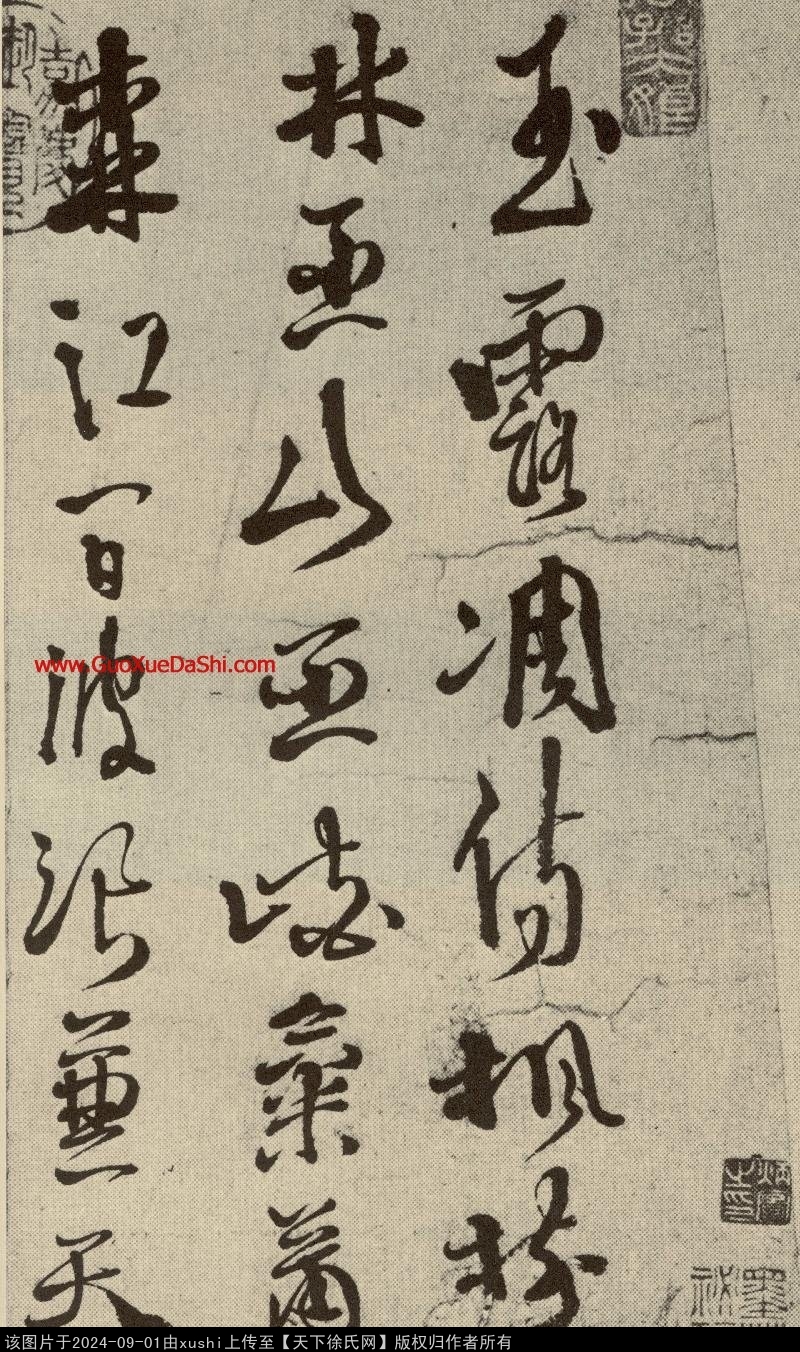 玉露凋傷楓樹
林巫山巫峽氣蕭
森江間波浪兼天
www.GuoXueDaShi.com
该图片于2024-09-01由xushi上传至【天下徐氏网】版权归作者所有